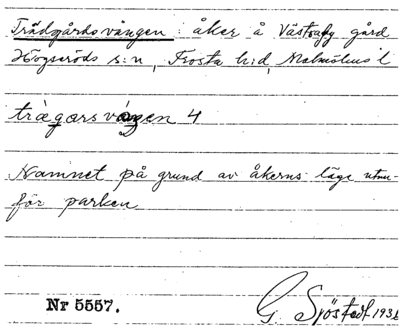 Trädgårdsvången: åker å Västraby gård
Högseröds s:n, Frosta h:d, Malmöhus l
trägårsvåŋen 4
Namnet på grund av åkerns läge utan-
för parken
Nr 5557.
G. Sjöstedt 193